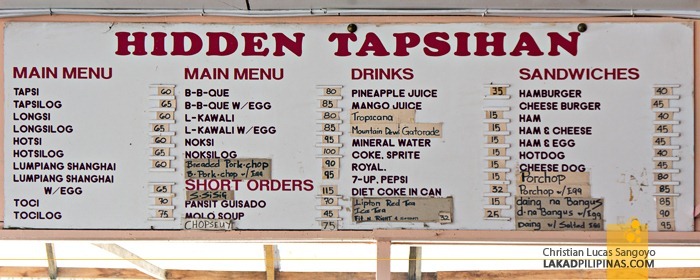 HIDDEN TAPSIHAN
MAIN MENU
TAPSI 60
TAPSILOG 65
LONGSI 60
LONGSILOG 65
HOTSI 60
HOTSILOG 65
LUMPIANG SHANGHAI 60
LUMPIANG SHANGHAI
W/EGG 65
TOCI 70
TOCILOG 75
MAIN MENU
B-B-QUE 80
B-B-QUE W/EGG 85
L-KAWALI 80
L-KAWALI W/EGG 85
NOKSI 95
NOKSILOG 95
Breaded Pork-chop 90
B-Pork-chop w/Egg 95
SHORT ORDERS
S-SiSig 115
PANSIT GUISADO 75
MOLO SOUP 45
CHOPSEUY
DRINKS
PINEAPPLE JUICE 35
MANGO JUICE
Tropicana 15
Mountain Dew Gatorade
MINERAL WATER 15
COKE, SPRITE 15
ROYAL, 15
7-UP, PEPSI 15
DIET COKE IN CAN 32
Lipton Red Tea 15
Ice Tea
Fit n RIGHT
SANDWICHES
HAMBURGER 40
CHEESE BURGER 45
HAM 40
HAM & CHEESE 45
HAM & EGG 45
HOTDOG 40
CHEESE DOG 45
Porchop 80
Porchop w/Egg 85
daing na Bangus 85
d-na Bangus w/Egg
Daing w/ Salted Egg 90
Christian Lucas Sangoyo
LAKADPILIPINAS.COM